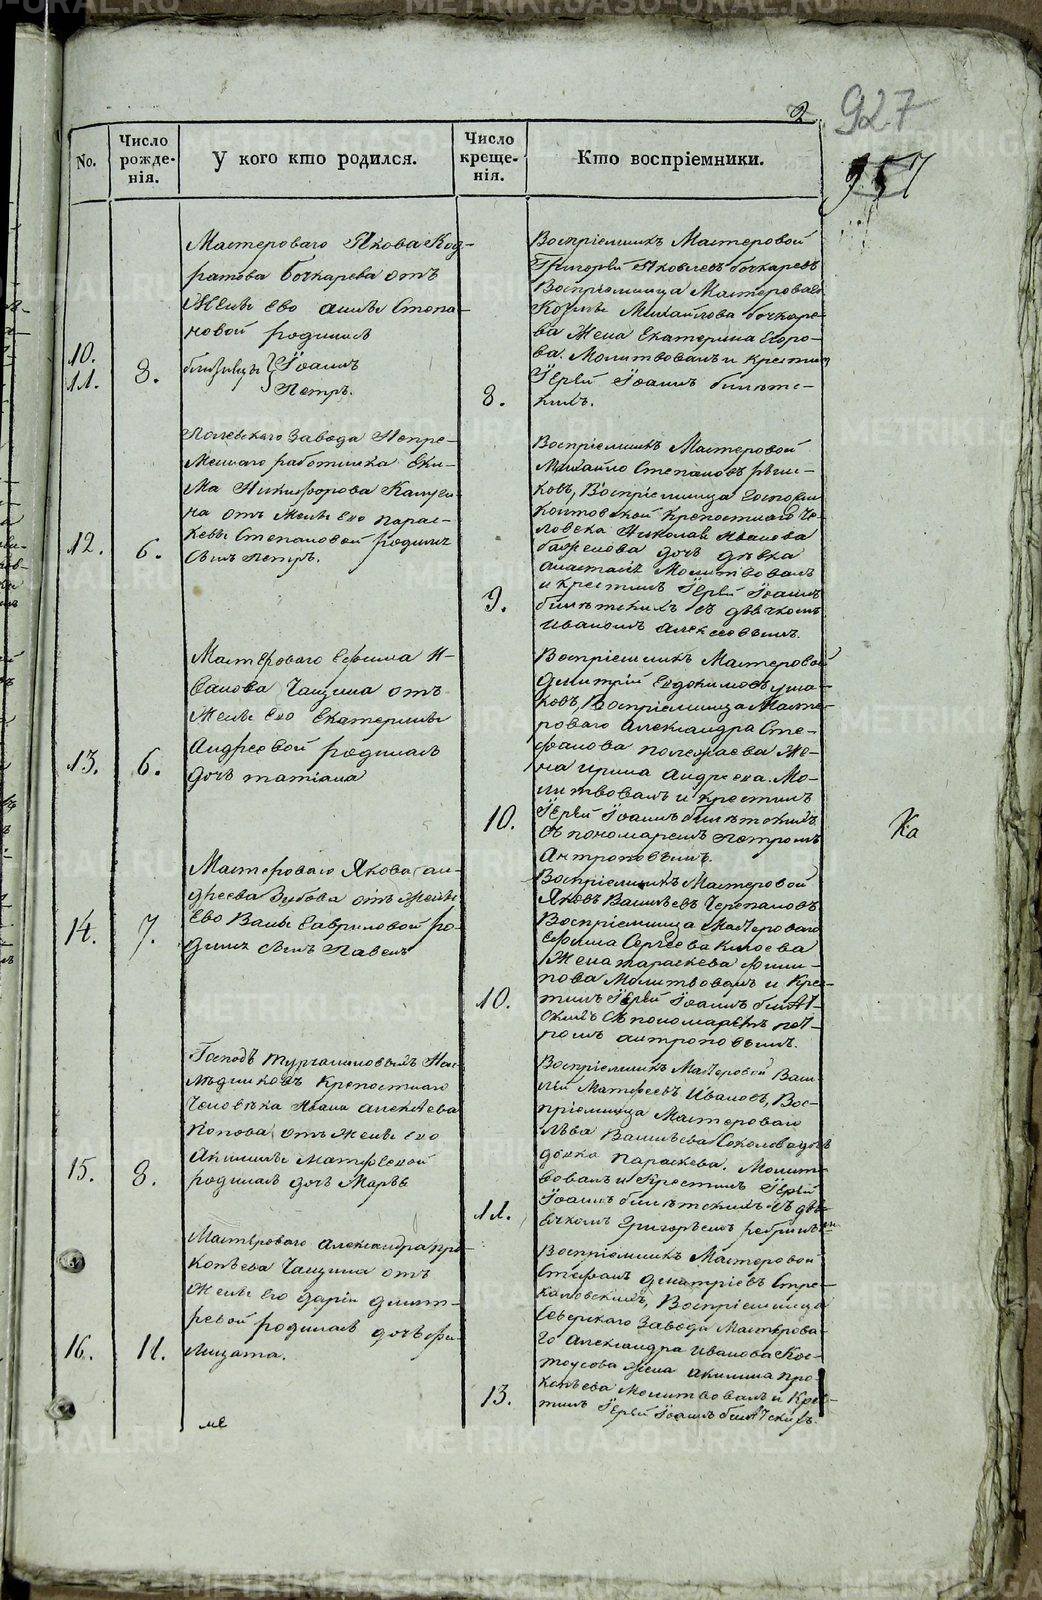 2
927
957
No.
Число рожде-
нія.
У кого кто родился.
Число креще-
нія.
Кто воспріемники.
10.
11.
8.
Мастероваго Якова Код-
ратова Бочкарева отъ
Жены Ево Анны Степа-
новой родились
близнецы Іоаннъ
Петръ.
8.
Воспріемникъ Мастеровой
Григорей Яковлевъ Бочкаревъ
Воспріемница Мастероваго
Козмы Михайлова Бочкаре-
ва Жена Екатерина Егоро-
ва. Молитвовалъ и крестил
Іерей Іоаннъ
12.
6.
Полевскаго Завода Непре-
меннаго работника Еки-
ма Никифорова
на отъ Жены Его Парас-
кевы Степановой родился
сынъ Петръ.
9.
Воспріемникъ Мастеровой
Михайло Степановъ
ковъ, Воспріемница Госпожи
крепостнаго Че-
ловека Николая Иванова
дочь девка
Молитвовалъ
и крестилъ Іерей Іоаннъ
съ дьячкомъ
Иваномъ Алексеевымъ.
13.
6.
Мастероваго Ефима И-
ванова Чащина отъ
Жены Его Екатерины
Андреевой родилась
дочь Татіана
10.
Воспріемникъ Мастеровой
Димитрій Евдокимовъ Уша-
ковъ, Воспріемница Масте-
роваго Александра Сте-
фанова Полежаева Же-
на Ирина Андреева. Мо-
литвовалъ и крестилъ
Іерей Іоаннъ
съ пономаремъ Петромъ
Антроповымъ.
Ка
14.
7.
Мастероваго Якова Ан-
дреева Зубова отъ Жены
Ево Гавриловой ро-
дился сынъ Павелъ
10.
Воспріемникъ Мастеровой
Яковъ Васильевъ Черепановъ
Воспріемница Мастероваго
Ефима Сергеева
Жена Параскева Фили-
пова Молитвовалъ и Кре-
стилъ Іерей Іоаннъ
съ пономаремъ Пет-
ромъ Антроповымъ.
15.
8.
Господъ Турчаниновыхъ Нас-
ледниковъ Крепостнаго
Человека Ивана Алексеева
Попова отъ Жены Его
Акилины Матфеевой
родилась дочь Марья
11.
Воспріемникъ Мастеровой Васи-
лей Матфеевъ Ивановъ, Вос-
пріемница Мастероваго
Льва Васильева Соколова дочь
девка Параскева. Молит-
вовалъ и Крестилъ Іерей
Іоаннъ съ дья-
чкомъ Григорьемъ
16.
11.
Мастероваго Александра Про-
копьева Чащина отъ
Жены Его Дарьи Дмит-
ревой родилась дочь Фи-
лицата.
13.
Воспріемникъ Мастеровой
Стефанъ Дмитріевъ Стре-
каловскихъ, Воспріемница
Северскаго Завода Мастерова-
го Александра Иванова Кос-
тоусова Жена Акилина Про-
копьева Молитвовалъ и Кре-
стилъ Іерей Іоаннъ
ме